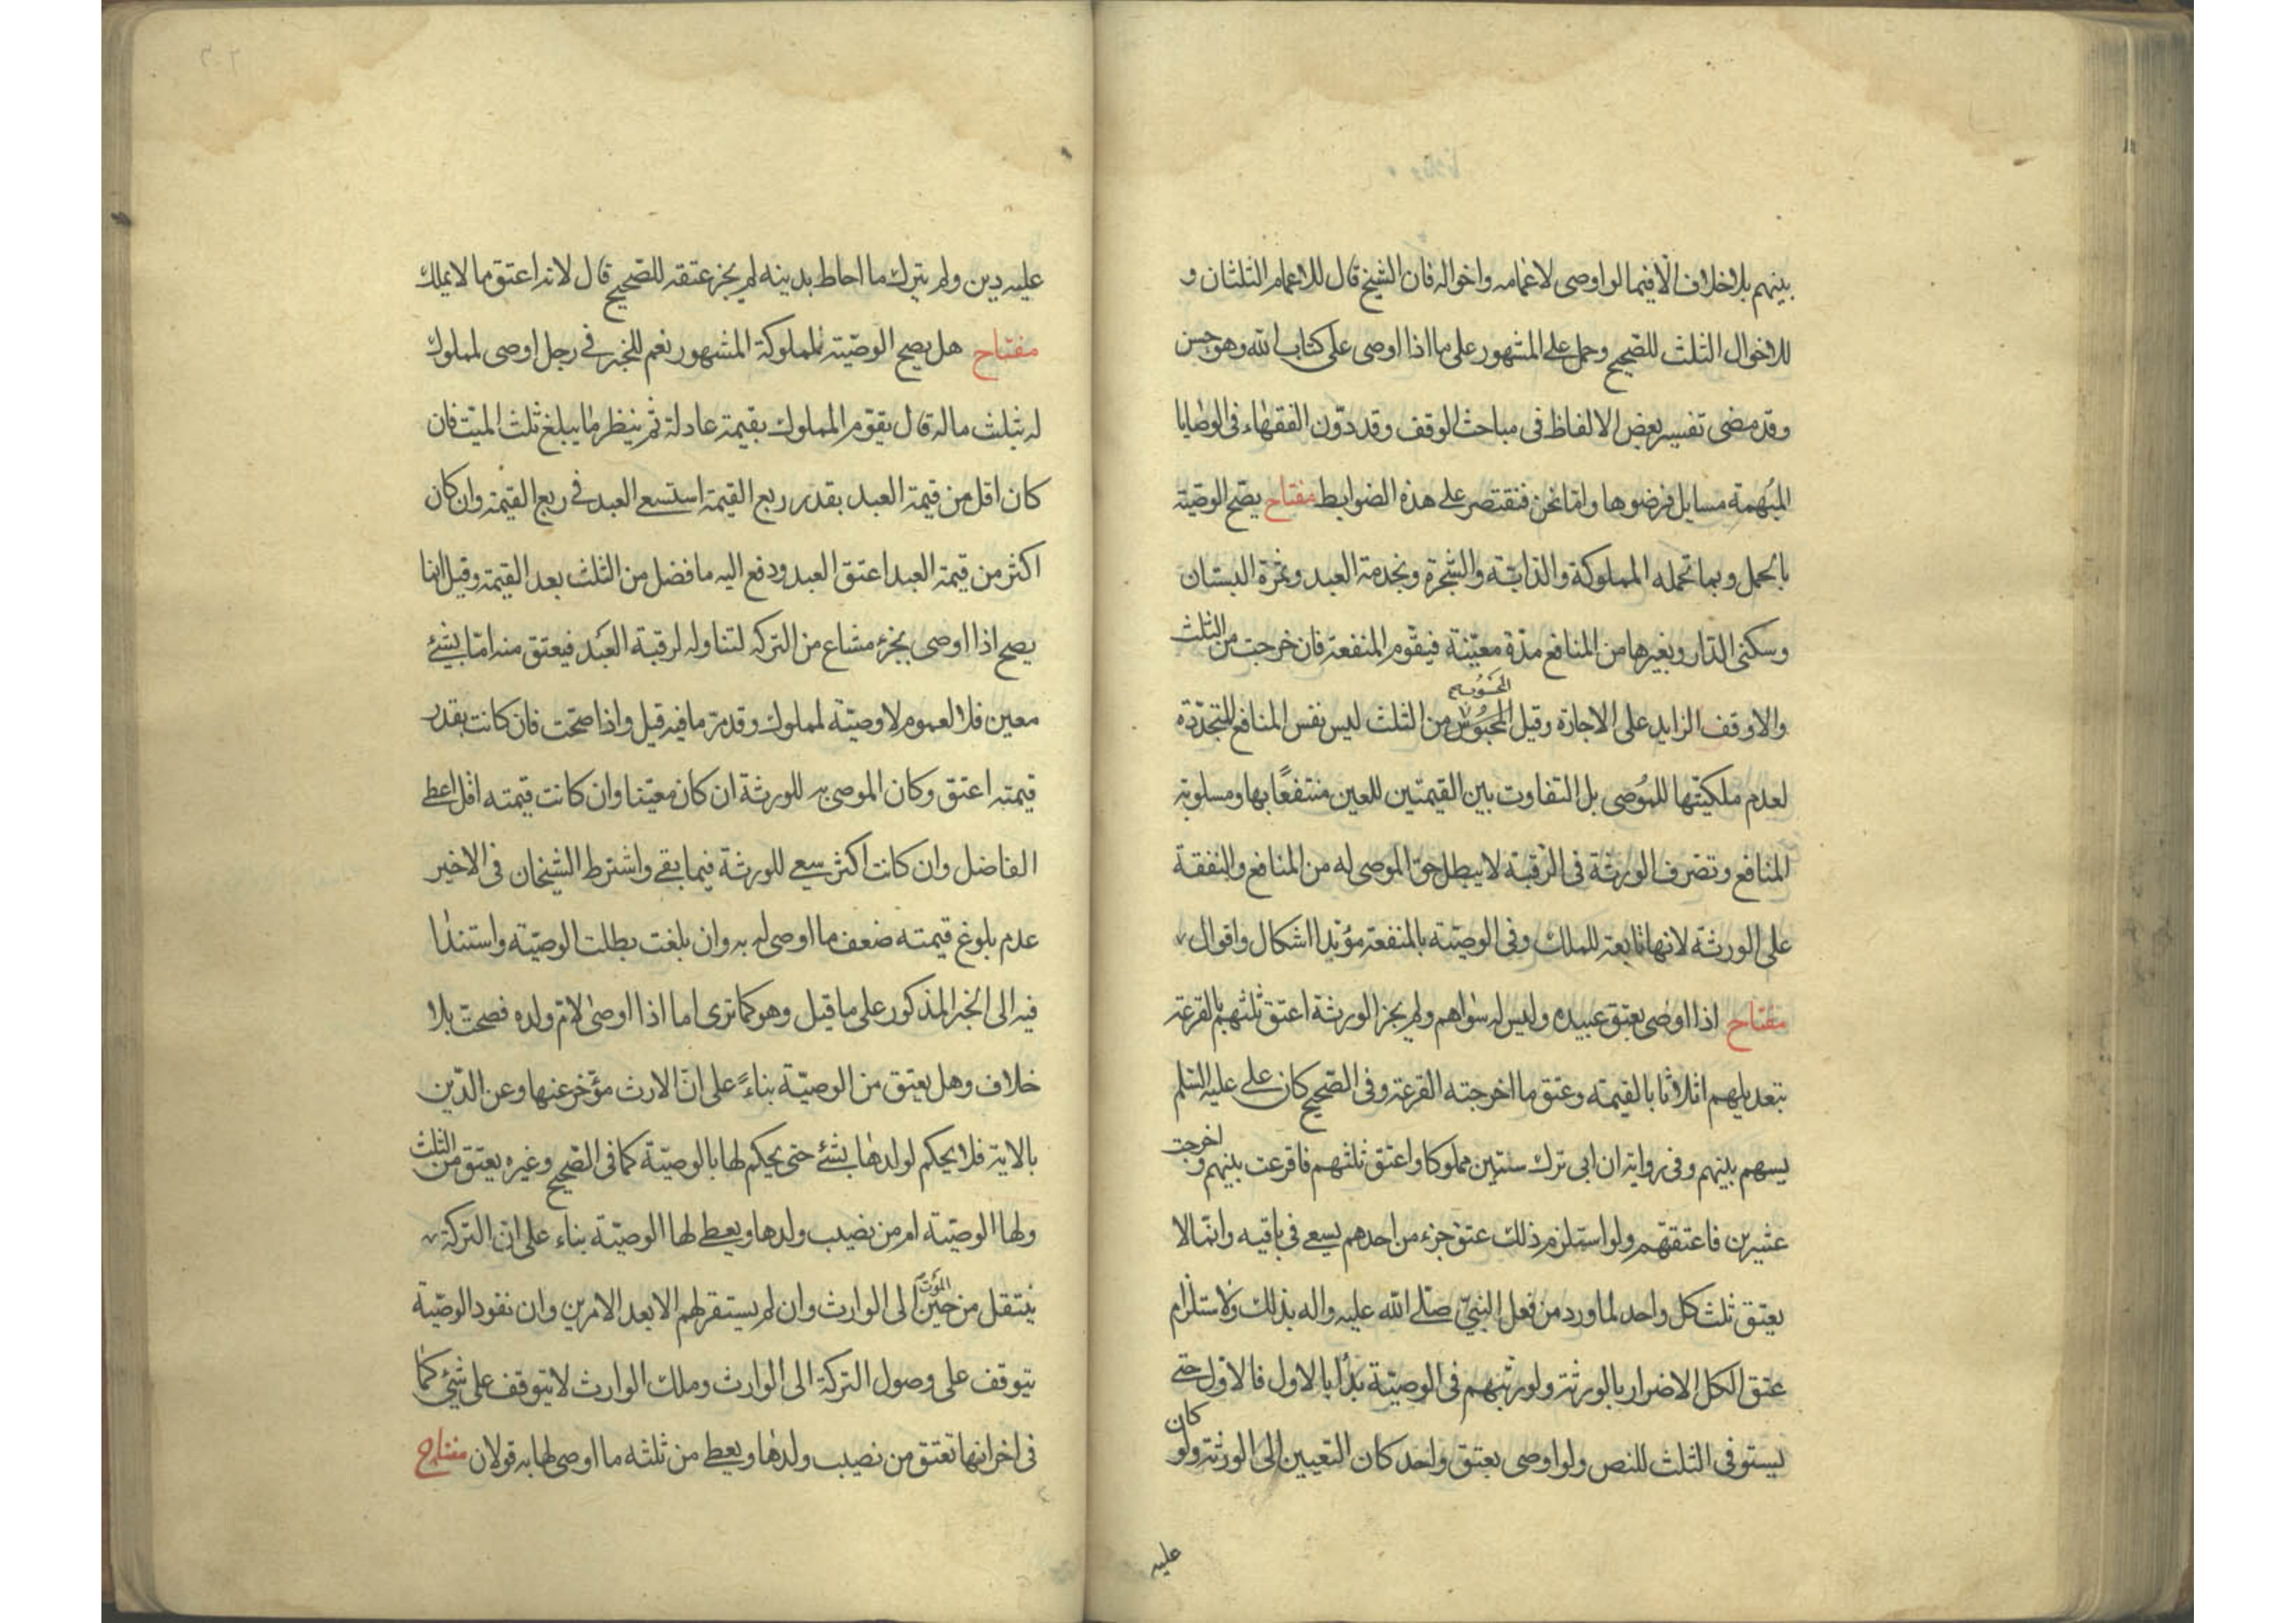 بينهم بلا خلاف الا فيما لو اوصى لاعمامه واخواله فان الشيخ قال للاعمام الثلثان و
للاخوال الثلث للصحيح وحمل على المشهور على ما اذا اوصى على كتاب الله وهو حسن
وقد مضى تفسير بعض الالفاظ فى مباحث الوقف وقد دوّن الفقهاء فى الوصايا
المبهمة مسايل فرضوها وامّا نحن فنقتصر على هذه الضوابط مفتاح يصّح الوصيّة
بالحمل وبما تحمله المملوكة والدابّة والشجرة وبخدمة العبد وثمرة البستان
وسكنى الدّار وبغيرها من المنافع مدّة معيّنة فيقوّم المنفعة فان خرجت من الثلث
والا وقف الزايد على الاجازة وقيل المحسوب من الثلث ليس نفس المنافع المتجدّدة
لعدم ملكيّتها للمُوصى بل التفاوت بين القيمتين للعين منتفعًا بها ومسلوبة
المنافع وتصّرف الورثة فى الرّقبة لا يبطل حق الموصى له من المنافع والنفقة
على الورثة لانها تابعة للملك وفى الوصيّة بالمنفعة مؤبّدا اشكال واقوال
مفتاح اذا اوصى بعتق عبيده وليس له سواهم ولم يجز الورثة اعتق ثلثهم بالقرعة
بتعديلهم اثلاثا بالقيمة وعتق ما اخرجته القرعة وفى الصّحيح كان على عليه السّلم
يسهم بينهم وفى رواية ان ابى ترك ستين مملوكا واعتق ثلثهم فاقرعت بينهم واخرجت
عشرين فاعتقتهم ولو استلزم ذلك عتق جزء من احدهم يسعى فى باقيه وانّما لا
يعتق ثلث كل واحد لما ورد من فعل النبىّ صلّى الله عليه واله بذلك ولاستلزام
عتق الكل الاضرار بالورثة ولو رتّبهم فى الوصيّة بدأ بالاول فالاوّل حتى
يستوفى الثلث للنص ولو اوصى بعتق واحد كان التعيين الى الورثة ولو كان
عليه
عليه دين ولم يترك ما احاط بدينه لم يجز عتقه للصّحيح قال لانه اعتق ما لا يملك
مفتاح هل يصح الوصيّة لمملوكه المشهور نعم للخبر فى رجل اوصى لمملوك
له بثلث ماله قال يقوّم المملوك بقيمة عادلة ثم ينظر ما يبلغ ثلث الميّت فان
كان اقل من قيمة العبد بقدر ربع القيمة استسعى العبد فى ربع القيمة وان كان
اكثر من قيمة العبد اعتق العبد ودفع اليه ما فضل من الثلث بعد القيمة وقيل انما
يصح اذا اوصى بجزء مشاع من التركه لتناوله لرقبة العبد فيعتق منه امّا بشئ
معين فلا لعموم لا وصيّة لمملوك وقد مرّ ما فيه قيل واذا صحّت فان كانت بقدر
قيمته اعتق وكان الموصى به للورثة ان كان معيّنا وان كانت قيمته اقل اعطى
الفاضل وان كانت اكثر سعى للورثة فيما بقى واشترط الشيخان فى الاخير
عدم بلوغ قيمته ضعف ما اوصى له به وان بلغت بطلت الوصيّة واستندا
فيه الى الخبر المذكور على ما قيل وهو كما ترى اما اذا اوصى لامّ ولده فصحت بلا
خلاف وهل يعتق من الوصيّة بناءً على انّ الارث مؤخر عنها وعن الدّين
بالاية فلا يحكم لولدها بشئ حتى يحكم لها بالوصيّة كما فى الصّحيح وغيره يعتق من الثلث
ولها الوصيّة ام من نصيب ولدها ويعطى لها الوصيّة بناء على ان التركة
ينتقل من حين الموت الى الوارث وان لم يستقر لهم الا بعد الامرين وان نفوذ الوصيّة
يتوقف على وصول التركة الى الوارث وملك الوارث لا يتوقف على شئ كما
فى اخر انها تعتق من نصيب ولدها ويعطى من ثلثه ما اوصى لها به قولان مفتاح